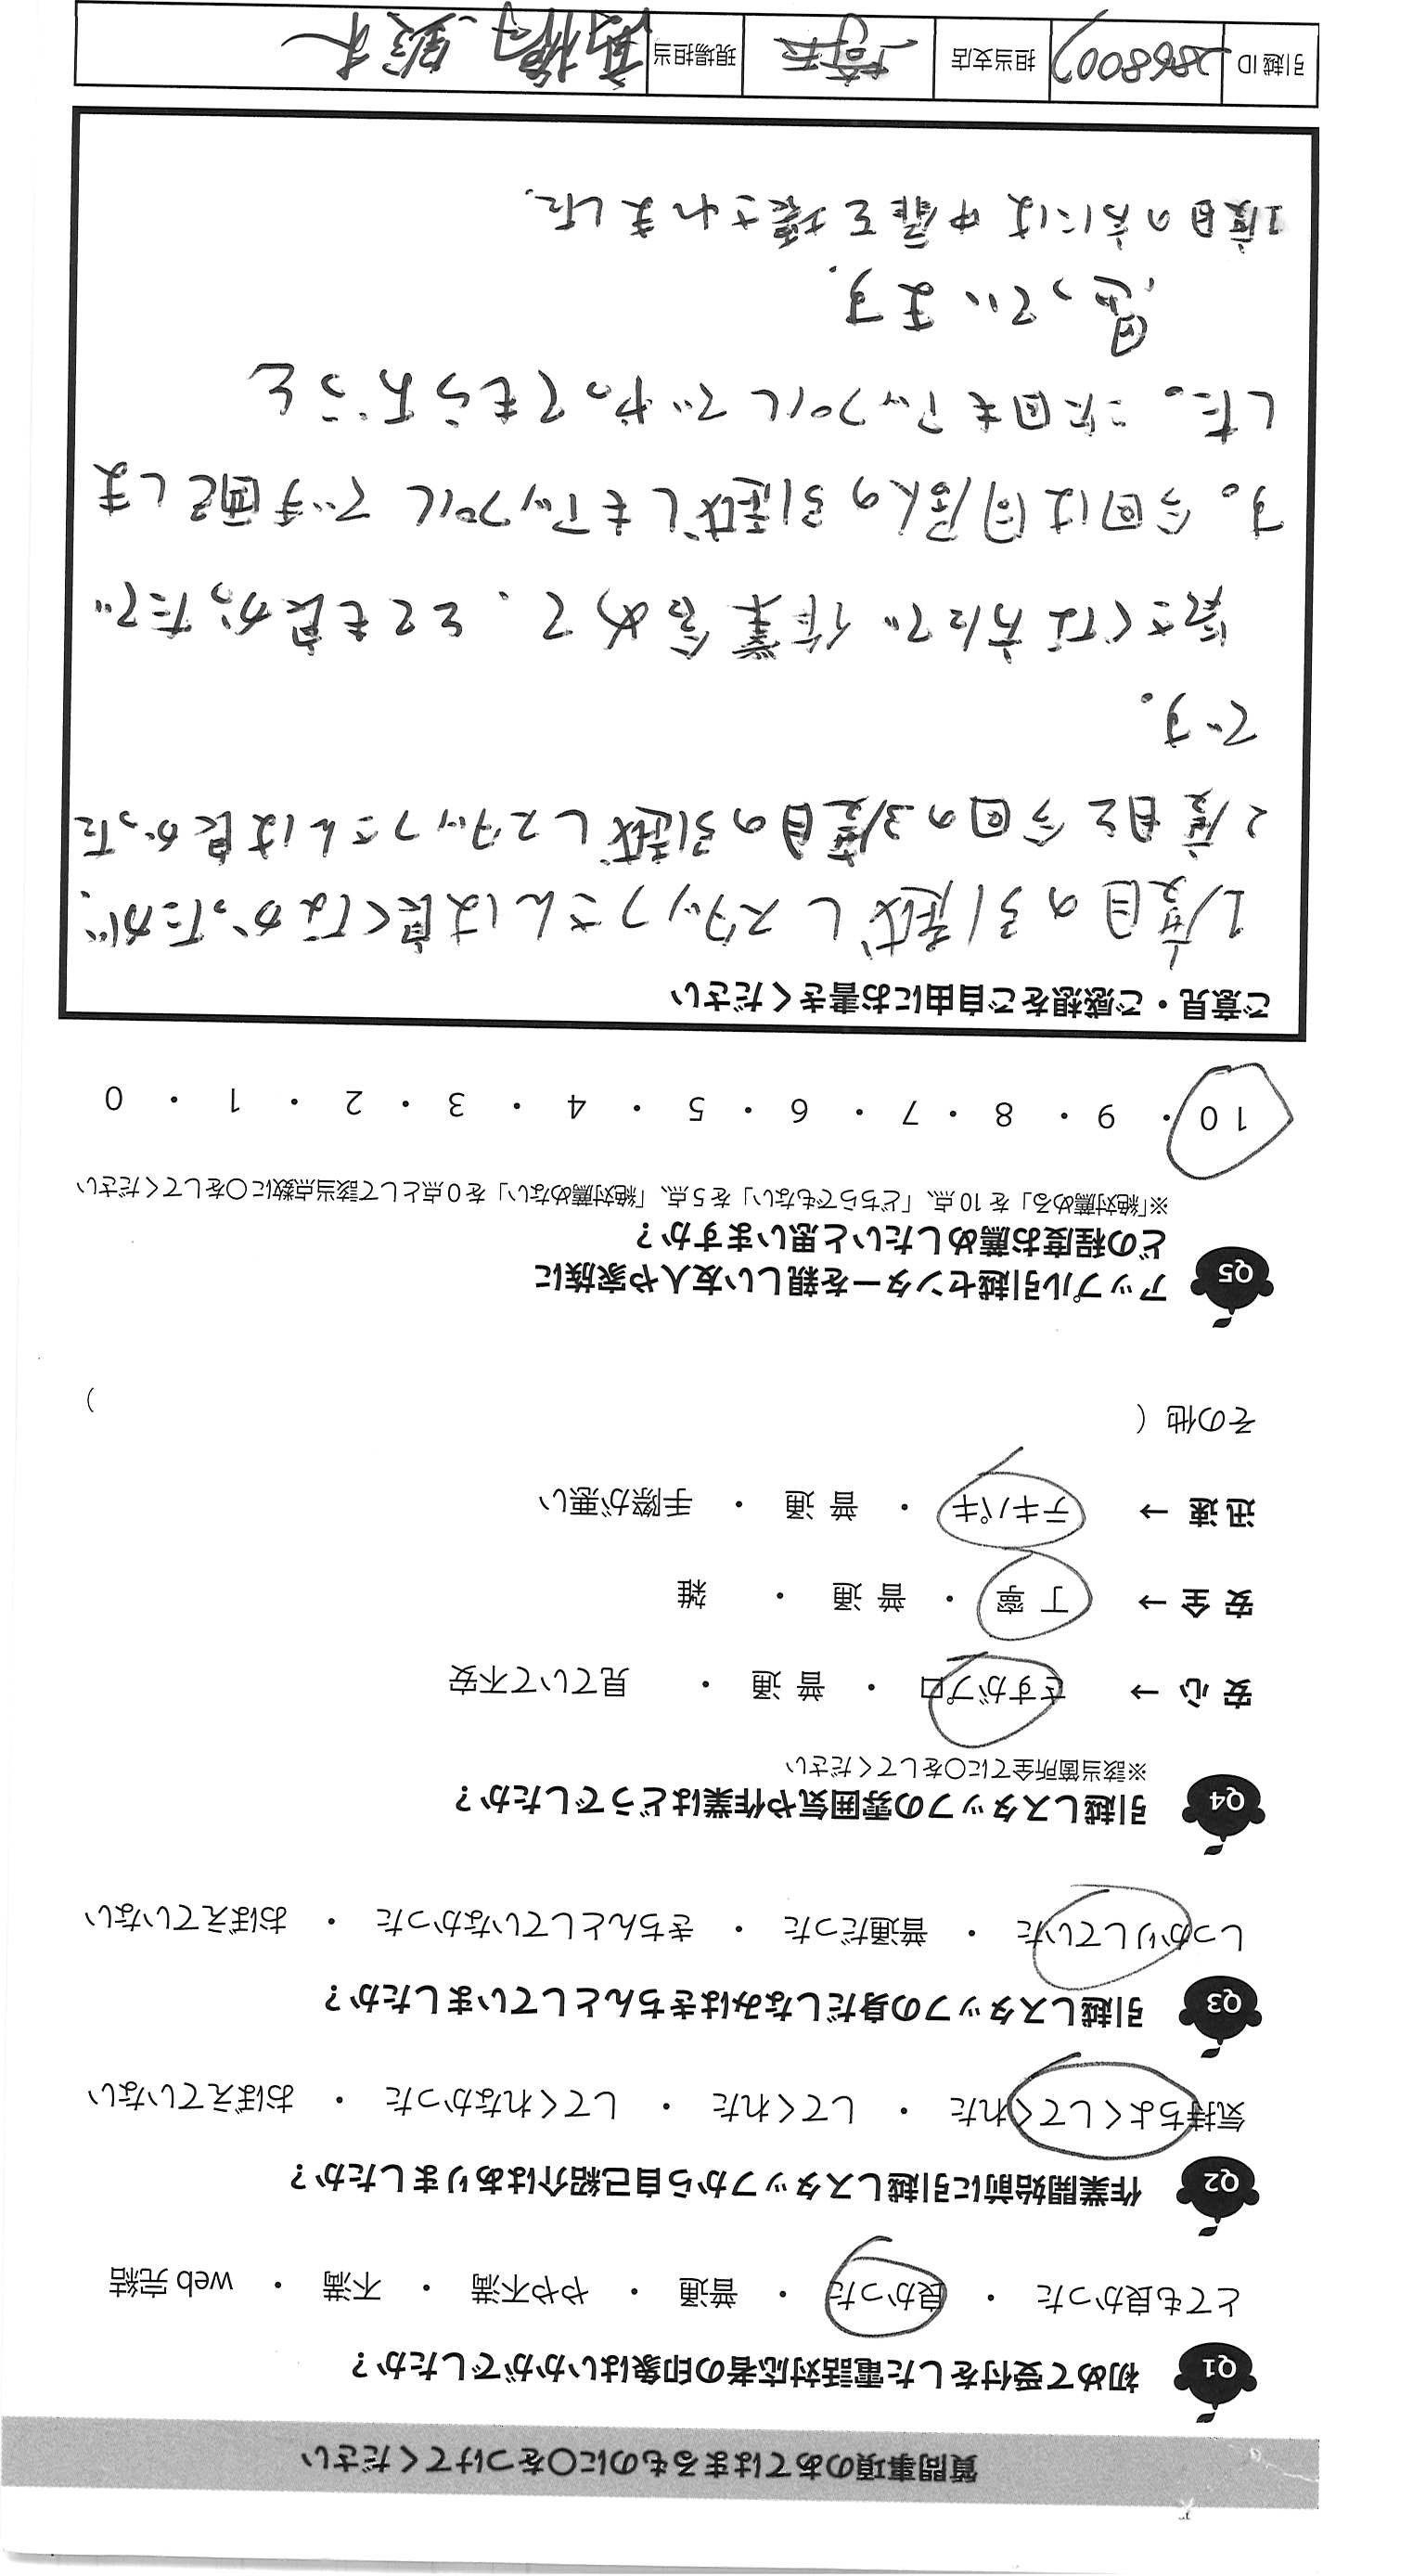 質問事項のあてはまるものに○をつけてください
Q1 初めて受付をした電話対応者の印象はいかがでしたか?
とても良かった ・ 良かった ・ 普通 ・ やや不満 ・ 不満 ・ web 完結
Q2 作業開始前に引越しスタッフから自己紹介はありましたか?
気持ちよくしてくれた ・ してくれた ・ してくれなかった ・ おぼえていない
Q3 引越しスタッフの身だしなみはきちんとしていましたか?
しっかりしていた ・ 普通だった ・ きちんとしていなかった ・ おぼえていない
Q4 引越しスタッフの雰囲気や作業はどうでしたか?
※該当箇所全てに○をしてください
安 心 → さすがプロ ・ 普 通 ・ 見ていて不安
安 全 → 丁 寧 ・ 普 通 ・ 雑
迅 速 → テキパキ ・ 普 通 ・ 手際が悪い
その他 ( )
Q5 アップル引越センターを親しい友人や家族に
どの程度お薦めしたいと思いますか?
※「絶対薦める」を 10 点、「どちらでもない」を 5 点、「絶対薦めない」を 0 点として該当点数に○をしてください
10 ・ 9 ・ 8 ・ 7 ・ 6 ・ 5 ・ 4 ・ 3 ・ 2 ・ 1 ・ 0
ご意見・ご感想をご自由にお書きください
1度目の引越しスタッフさんは良くなかったが、
2度目と今回の3度目の引越しスタッフさんは良かった
です。
気さくな方たちで作業含めて、とても良かったで
す。今回は同居人の引越しもアップルで手配しま
した。二次回もアップルでやってもらおうと
思っています。
1度目の方には中扉を壊されました。
引越 ID 2868009 担当支店 埼玉 現場担当 高橋 鈴木